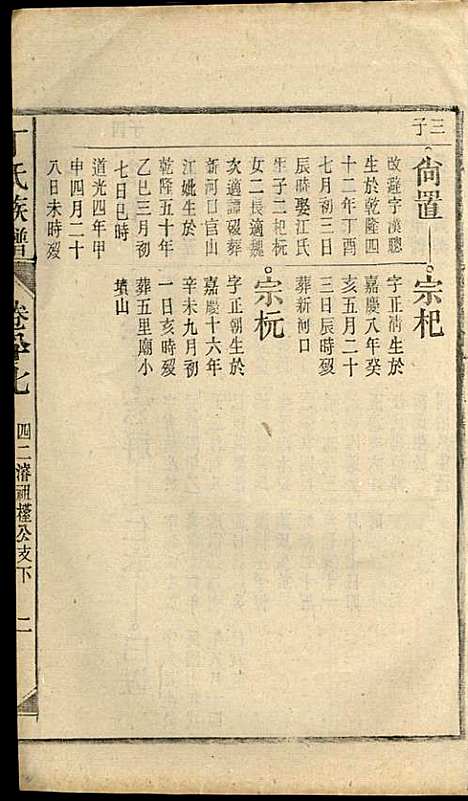 三子
尙置
宗杞
改避字漢聰
生於乾隆四
十二年丁酉
七月初三日
辰時娶江氏
生子二杞杬
女二長適魏
次適譚歿葬
新河口官山
江妣生於
乾隆五十年
乙巳三月初
七日巳時
道光四年甲
申四月二十
八日未時歿
字正清生於
嘉慶八年癸
亥五月二十
三日辰時歿
葬新河口
宗杬
字正朝生於
嘉慶十六年
辛未九月初
一日亥時歿
葬五里廟小
墳山
丁氏族譜
卷
七
四二濬祖權公支下
二